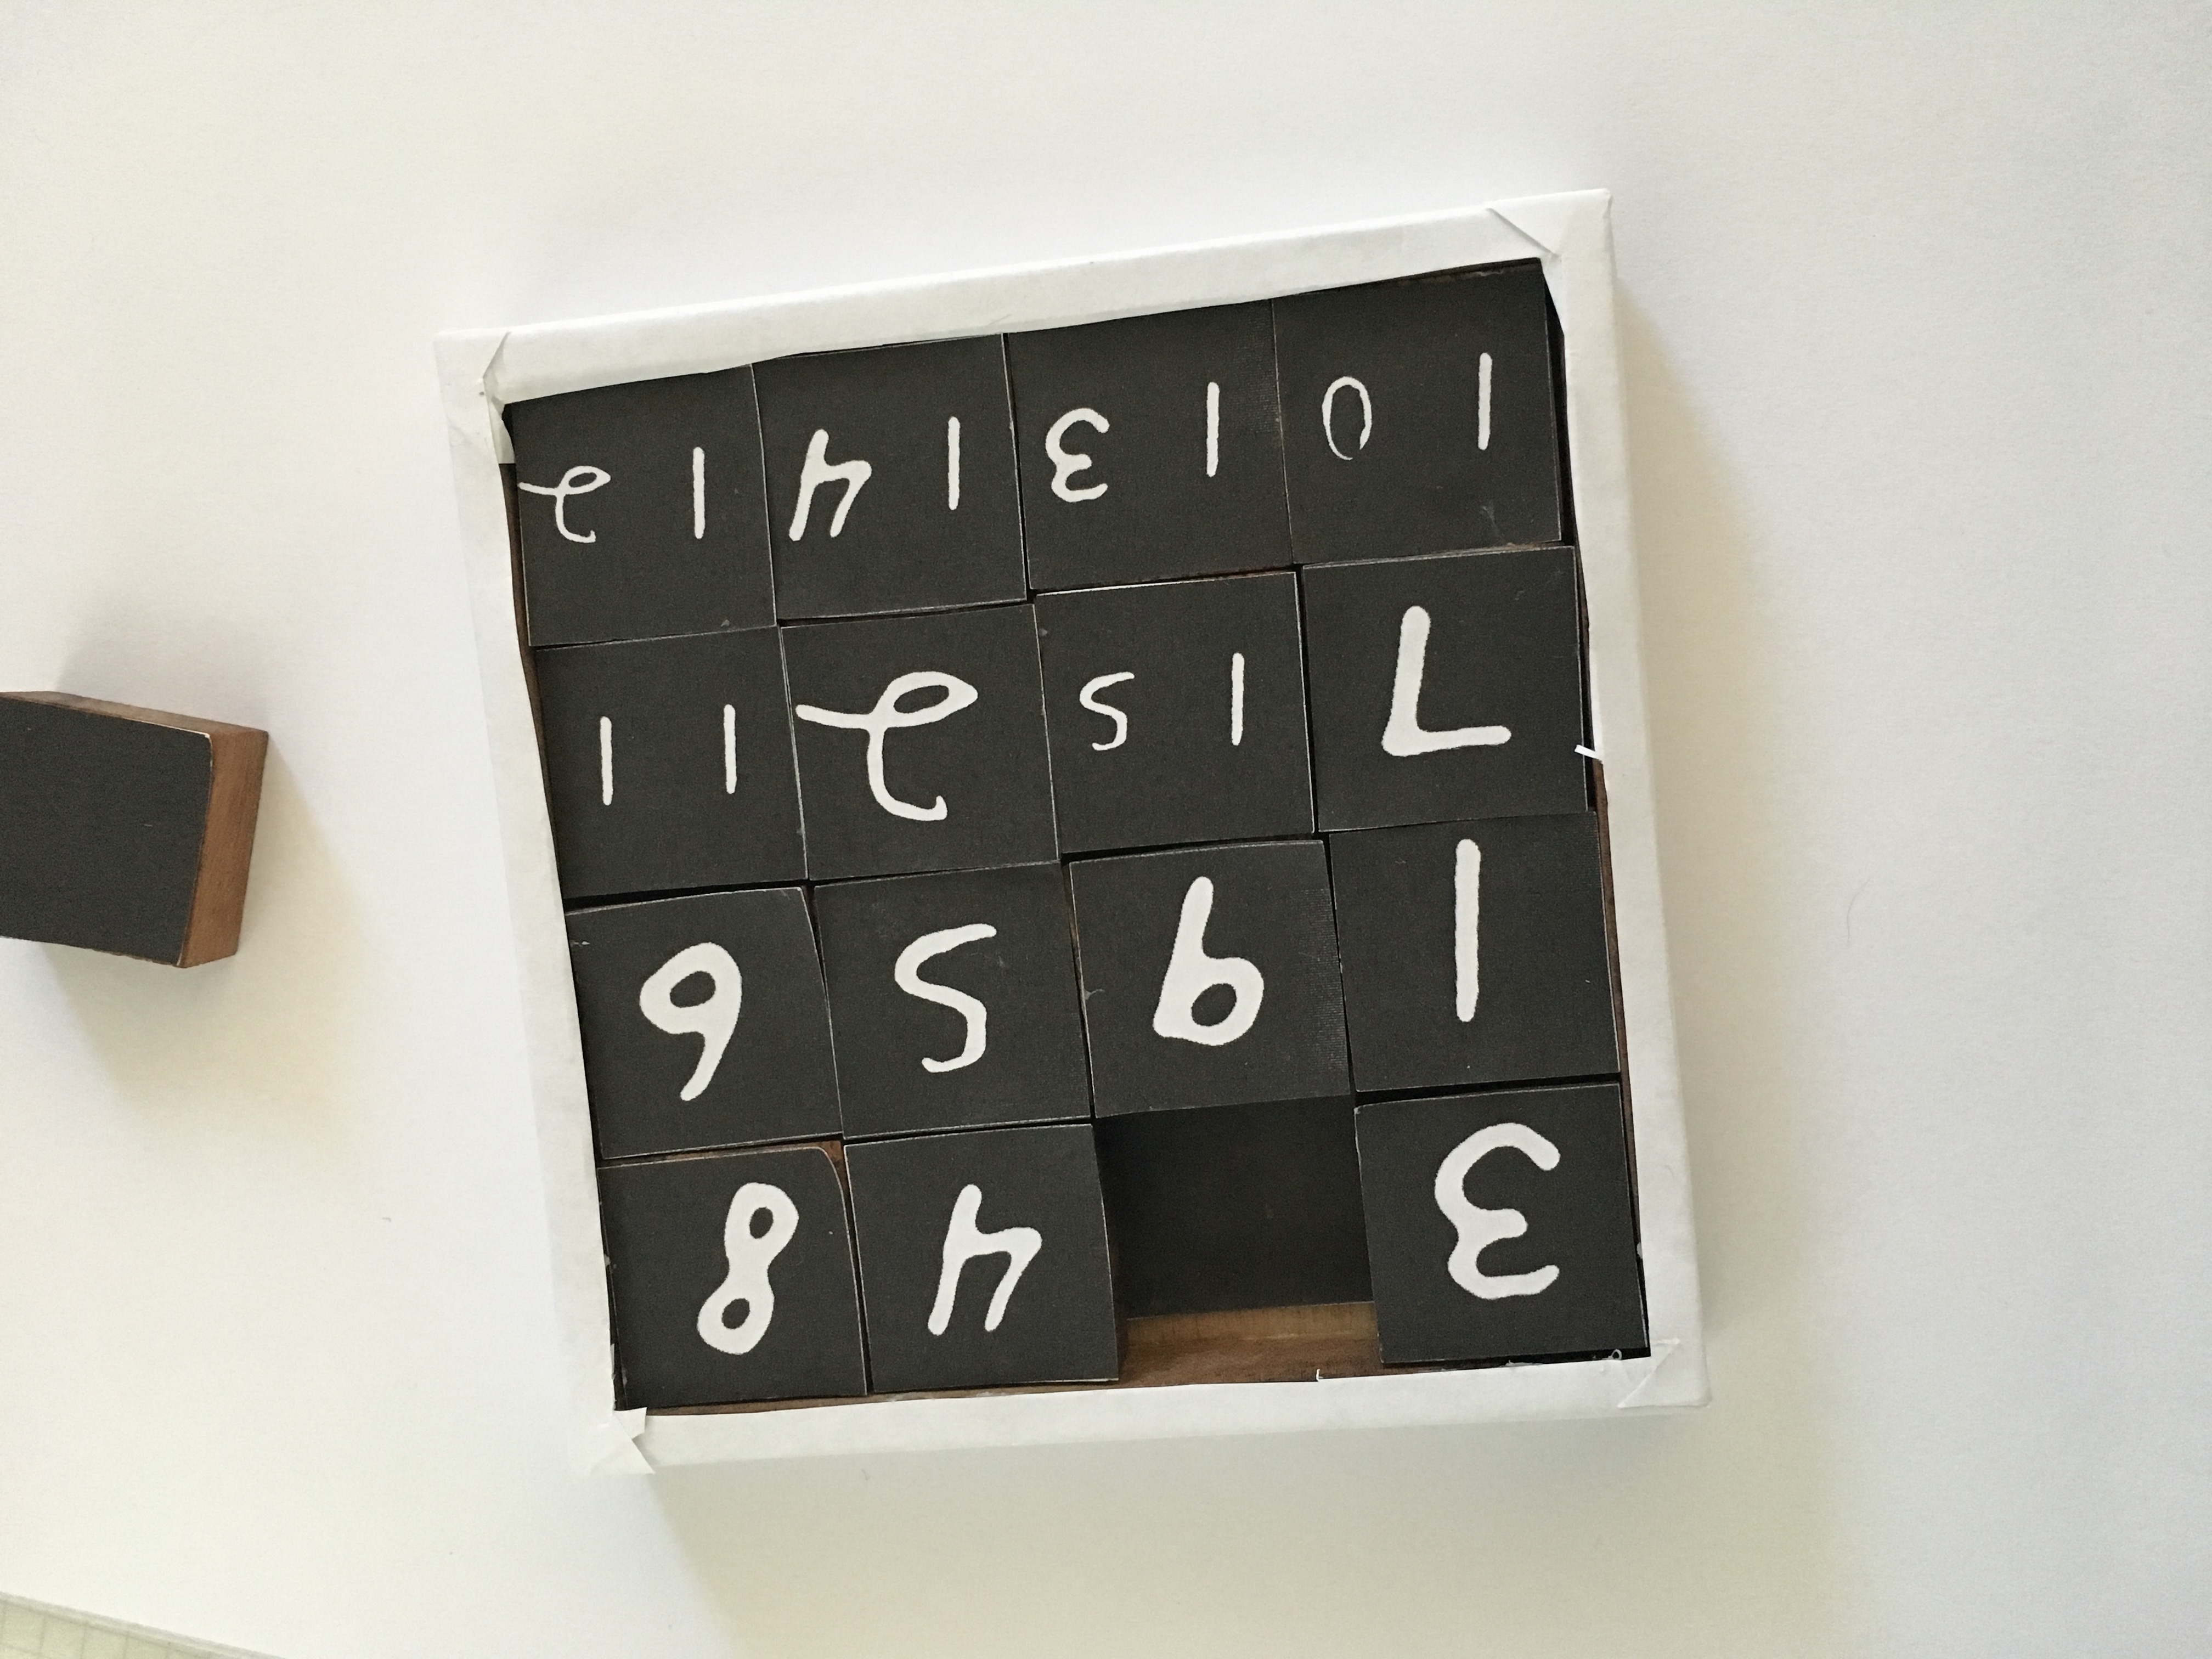 3 4 8
1 9 5 6
7 15 2 11
10 13 14 12